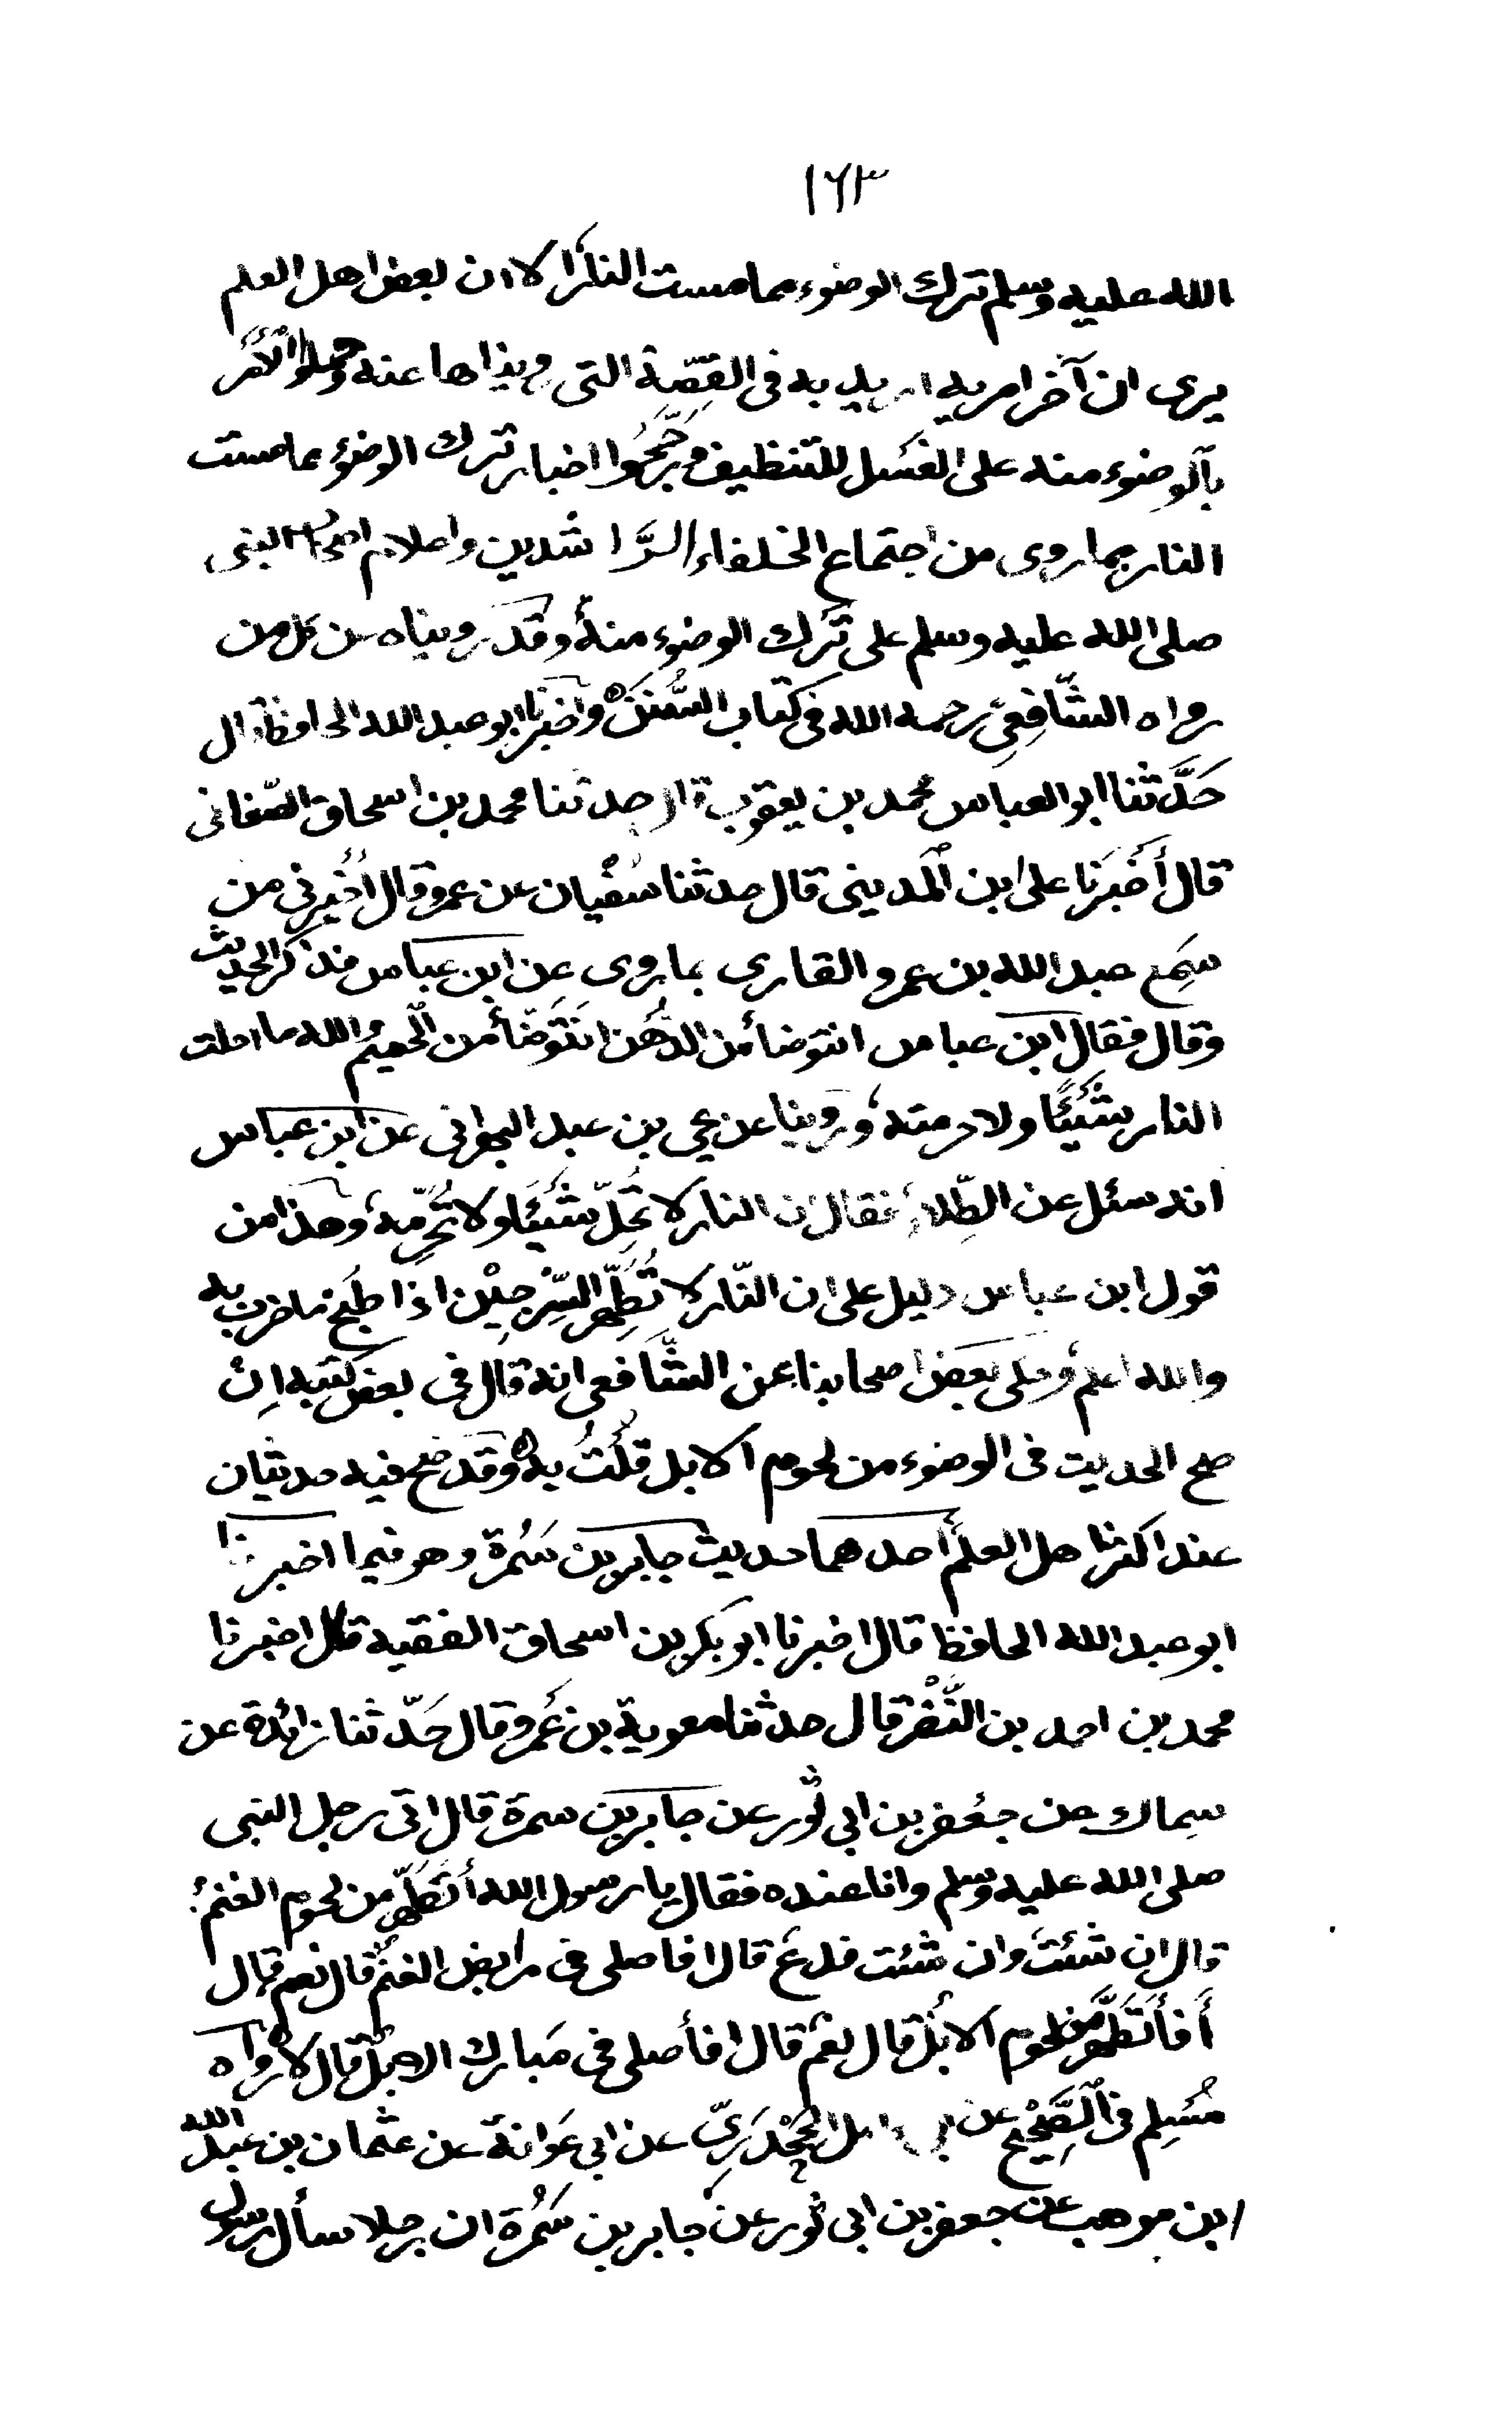 ١٦٣
الله عليه وسلم ترك الوضوء مما مست النار الا ان بعض اهل العلم
يرى ان آخر امريه اريد به فى القصّة التى رويناها عنه وحملوا الأمر
بالوضوء منه على الغسل للتنظيف ورجّحوا اخبار ترك الوضوء مما مست
النار بما روى من اجتماع الخلفاء الرَّاشدين واعلام اصحاب النبى
صلى الله عليه وسلم على ترك الوضوء منه وقد رويناه عن كل من
رواه الشّافِعِيّ رحمه الله فى كتاب السُّنَن وأخبرنا ابو عبد الله الحافظ قال
حَدَّثنا ابو العباس محمد بن يعقوب قال حدثنا محمد بن اسحاق الصّغانى
قال أَخْبَرَنا على ابن المَدينى قال حدثنا سُفْيان عن عمرو قال أَخْبرنى من
سَمِع عبد الله بن عمرو القارى بما روى عن ابن عباس فذكر الحديث
وقال فقال ابن عباس انتوضأ من الدُّهن انَتَوَضّأ من الحميم والله ما احلت
النار شَيْئًا ولا حرمته وروينا عن يحيى بن عبد البهرانى عن ابن عباس
انه سئل عن الطِّلاء فقال ان النار لا تُحِلّ شَيْئًا ولا تُحَرِّمه وهذا من
قول ابن عباس دليل على ان النّار لا تُطَهِّر السِّرْجِيْن اذا طبخ ما ضرب به
والله اعلم وحكى بعض اصحابنا عن الشَّافعى انه قال فى بعض كتبه اِنْ
صح الحديث فى الوضوء من لحوم الابل قُلْتُ به وقد صح فيه حديثان
عند اكثر اهل العلم أحدهما حديث جابر بن سَمُرة وهو فيما اخبرنا
ابو عبد الله الحافظ قال اخبرنا ابو بكر بن اسحاق الفقيه قال اخبرنا
محمد بن احمد بن النَّضْر قال حدثنا معوية بن عَمرو قال حَدّثنا زائدة عن
سِماك عن جعفر بن ابى ثَور عن جابر بن سمرة قال اتى رجل النبى
صلى الله عليه وسلم وانا عنده فقال يا رسول الله أَتَطَهَّر من لحوم الغنم
قال ان شئتَ وان شئت فدع قال افاصلى فى مرابض الغنم قال نعم قال
أَفأَتَطَهَّر من لحوم الابل قال نعم قال افأصلى فى مَبارك الابل قال لا رواه
مُسْلِم فى الصَّحِيْح عن ابى كامل الجَحْدَرِيّ عن ابى عَوَانة عن عثمان بن عبد الله
ابن موهب عن جعفر بن ابى ثور عن جابر بن سَمُرة ان رجلا سأل رسول